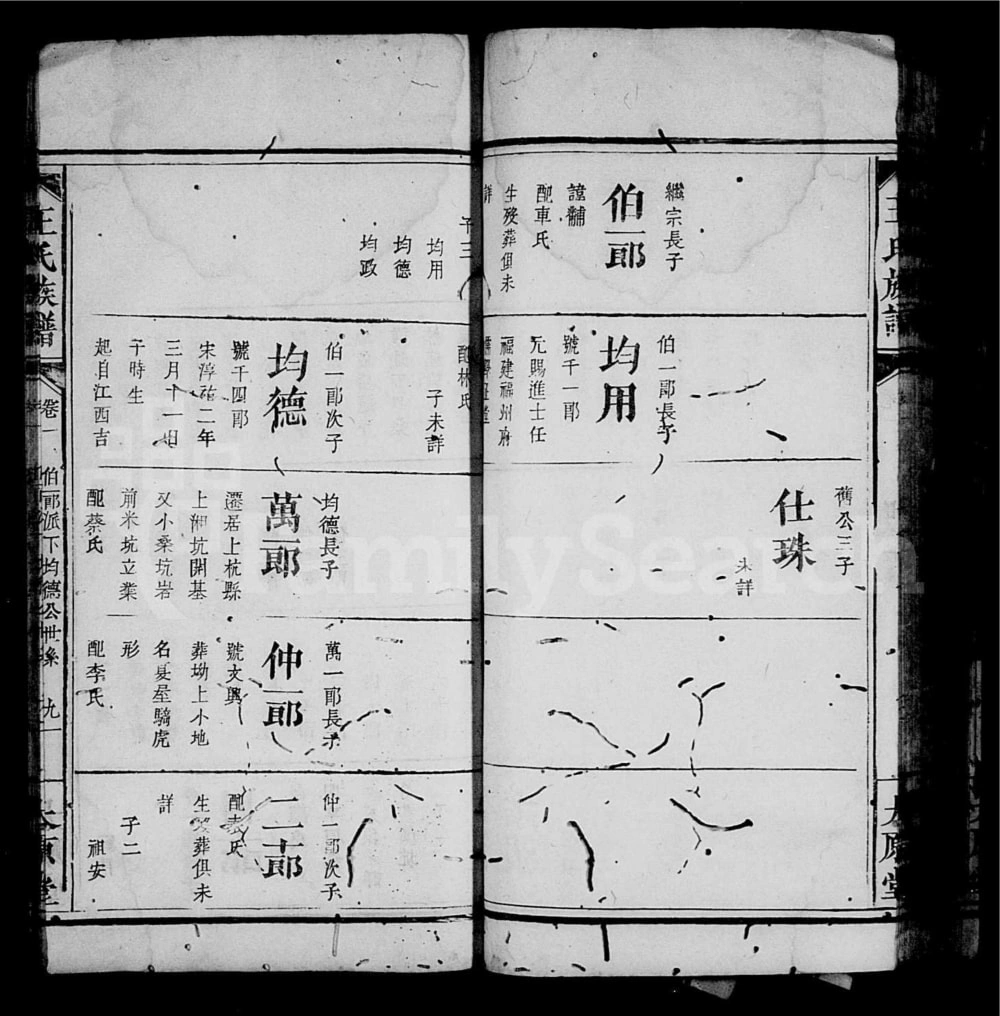 王氏族譜
太原堂
繼宗長子
伯一郎
諱黼
配車氏
生殁葬俱未
詳
子三
均用
均德
均政
伯一郎長子
均用
號千一郎
元賜進士任
福建福州府
配林氏
子未詳
舊公三子
仕珠
未詳
伯一郎次子
均德
號千四郎
宋淳祐二年
三月十一日
午時生
起自江西吉
均德長子
萬一郎
遷居上杭縣
上湘坑開基
又小桑坑岩
前米坑立業
配蔡氏
萬一郎長子
仲一郎
號文興
葬坳上小地
名夏屋騎虎
形
配李氏
仲一郎次子
二十郎
配袁氏
生殁葬俱未
詳
子二
祖安
王氏族譜
卷一
伯一郎派下均德公世系
九
太原堂
FamilySearch